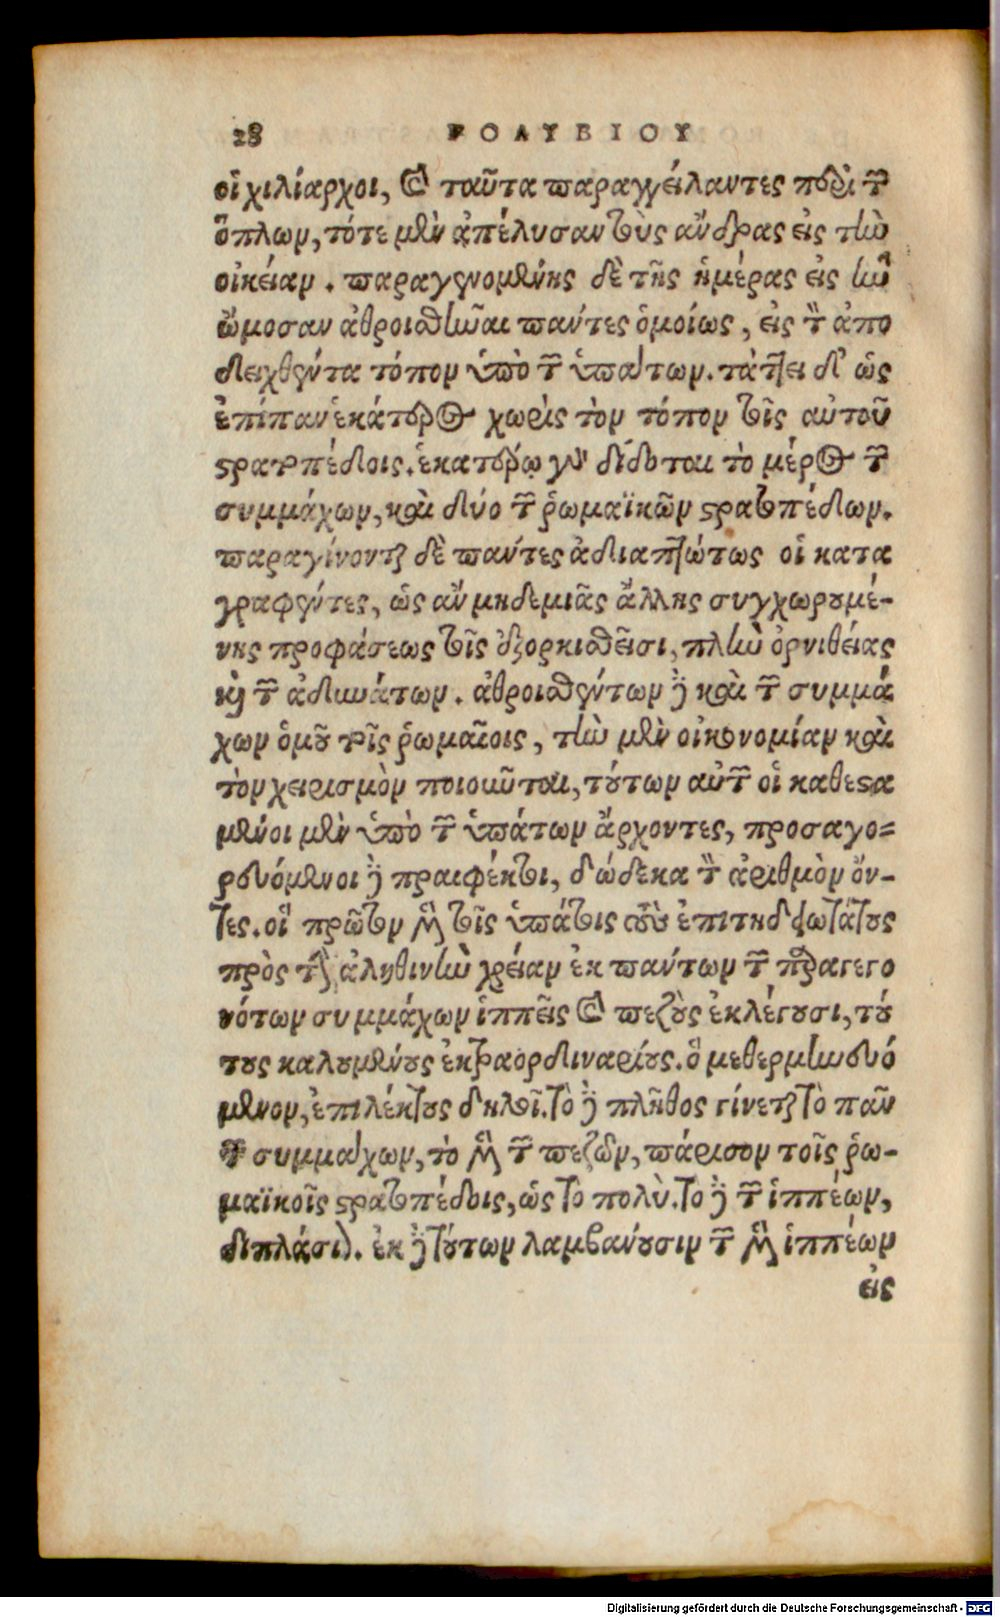 28 ΠΟΛΥΒΙΟΥ
οἱ χιλίαρχοι, καὶ ταῦτα παραγγείλαντες περὶ τῶν
ὅπλων, τότε μὲν ἀπέλυσαν τοὺς ἄνδρας εἰς τὴν
οἰκείαν. παραγενομένης δὲ τῆς ἡμέρας εἰς ἣν
ὤμοσαν ἀθροισθῆναι πάντες ὁμοίως, εἰς τὸν ἀπο
δειχθέντα τόπον ὑπὸ τῶν ὑπάτων. τάττει δ' ὡς
ἐπίπαν ἑκάτερος χωρὶς τὸν τόπον τοῖς αὑτοῦ
στρατοπέδοις. ἑκατέρῳ γὰρ δίδοται τὸ μέρος τῶν
συμμάχων, καὶ δύο τῶν ῥωμαϊκῶν στρατοπέδων.
παραγίνονται δὲ πάντες ἀδιαπτώτως οἱ κατα
γραφέντες, ὡς ἂν μηδεμιᾶς ἄλλης συγχωρουμέ-
νης προφάσεως τοῖς ἐξορκισθεῖσι, πλὴν ὀρνιθείας
καὶ τῶν ἀδυνάτων. ἀθροισθέντων δὲ καὶ τῶν συμμά
χων ὁμοῦ τοῖς ῥωμαίοις, τὴν μὲν οἰκονομίαν καὶ
τὸν χειρισμὸν ποιοῦνται, τούτων αὐτῶν οἱ καθεστα
μένοι μὲν ὑπὸ τῶν ὑπάτων ἄρχοντες, προσαγο=
ρευόμενοι δὲ πραιφέκτοι, δώδεκα τὸν ἀριθμὸν ὄν-
τες. οἳ πρῶτον μὲν τοῖς ὑπάτοις τοὺς ἐπιτηδειοτάτους
πρὸς τὴν ἀληθινὴν χρείαν ἐκ πάντων τῶν παραγεγο
νότων συμμάχων ἱππεῖς καὶ πεζοὺς ἐκλέγουσι, τού
τους καλουμένους ἐκτραορδιναρίους. ὃ μεθερμηνευό
μενον, ἐπιλέκτους δηλοῖ. τὸ δὲ πλῆθος γίνεται τὸ πᾶν
τῶν συμμάχων, τὸ μὲν τῶν πεζῶν, πάρισον τοῖς ῥω-
μαϊκοῖς στρατοπέδοις, ὡς τὸ πολὺ. τὸ δὲ τῶν ἱππέων,
διπλάσιον. ἐκ δὲ τούτων λαμβάνουσιν τῶν μὲν ἱππέων
εἰς
Digitalisierung gefördert durch die Deutsche Forschungsgemeinschaft - DFG